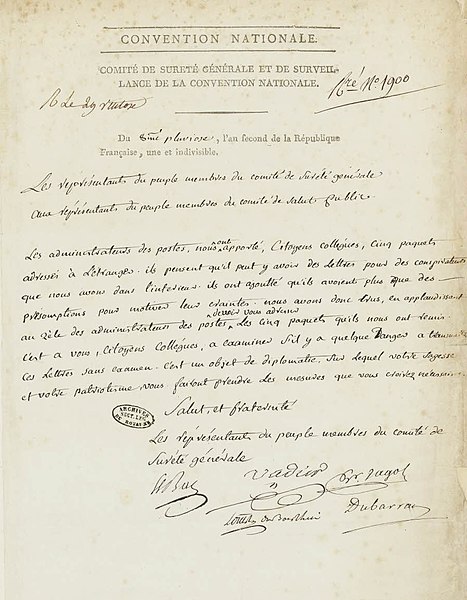 CONVENTION NATIONALE.
COMITÉ DE SURETÉ GÉNÉRALE ET DE SURVEIL-
LANCE DE LA CONVENTION NATIONALE.
Nº 1900
R Le 29 ventose
Du pluviose, l'an second de la République
Française, une et indivisible.
Les représentants du peuple membres du comité de Sureté générale
aux représentants du peuple membres du comité de Salut Public
Les administrateurs des postes, nous ont apporté, Citoyens collegues, Cinq paquets
adressés à L'etranger. ils pensent qu'il peut y avoir des Lettres pour des conspirateurs
que nous avons dans l'interieur. ils ont ajoutté qu'ils avoient plus que des
présomptions pour motiver leur craintes. nous avons donc Crus, en applaudissant
au zèle des administrateurs des postes devoir vous adresser Les Cinq paquets qu'ils nous ont remis.
C'est à vous, Citoyens Collegues, à examiner S'il y a quelque danger à transmettre
Ces Lettres sans examen. C'est un objet de diplomatie, Sur Lequel votre Sagesse
et votre patriotisme vous feront prendre Les mesures que vous croirez nécessaires.
Salut et fraternité
Les représentants du peuple membres du comité de
Sureté générale
Vadier
Jagot
Louis du bas Rhin
Dubarran
ARCHIVES